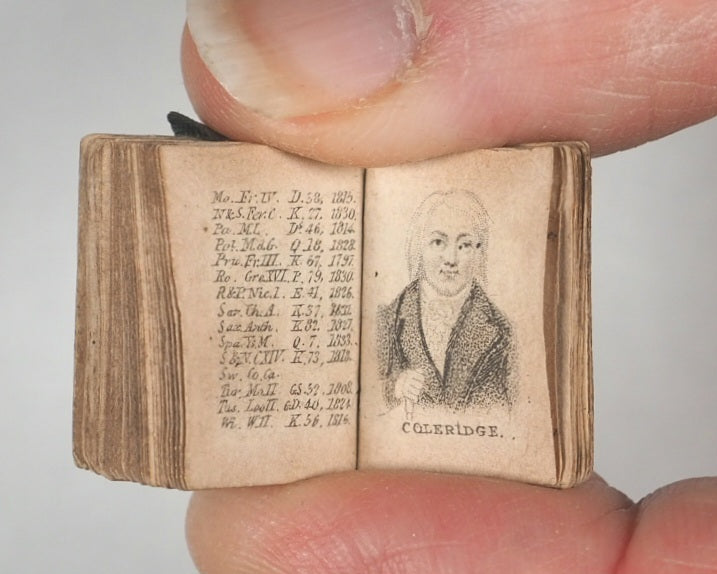 Mo. Fr. IV. D. 58, 1815.
N&S. Fer. C. K. 27. 1830.
Pa. M.L. Ds. 46, 1814.
Pot. M.d.G. Q. 18, 1828.
Pru. Fr. III. K. 67, 1797.
Ro. Gre. XVI. P. 79, 1830.
R&P. Nic. I. E. 41, 1826.
Sar. Ch. A. K. 37, 1831.
Sax. Anth. K. 82. 1827.
Spa. I.M. Q. 7, 1833.
S&N. C.XIV. K. 73, 1818.
Sw. Co. Ca.
Tur. Ma. II. GS. 52, 1808.
Tus. Leo II. GD. 40, 1824.
Wi. W.II. K. 56, 1816.
COLERIDGE.